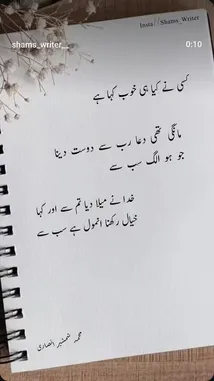 Insta//Shams_Writer
shams_writer_
0:10
کسی نے کیا ہی خوب کہا ہے
مانگی تھی دعا رب سے دوست دینا
جو ہو الگ سب سے
خدا نے میلا دیا تم سے اور کہا
خیال رکھنا انمول ہے سب سے
محمد شمشیر انصاری